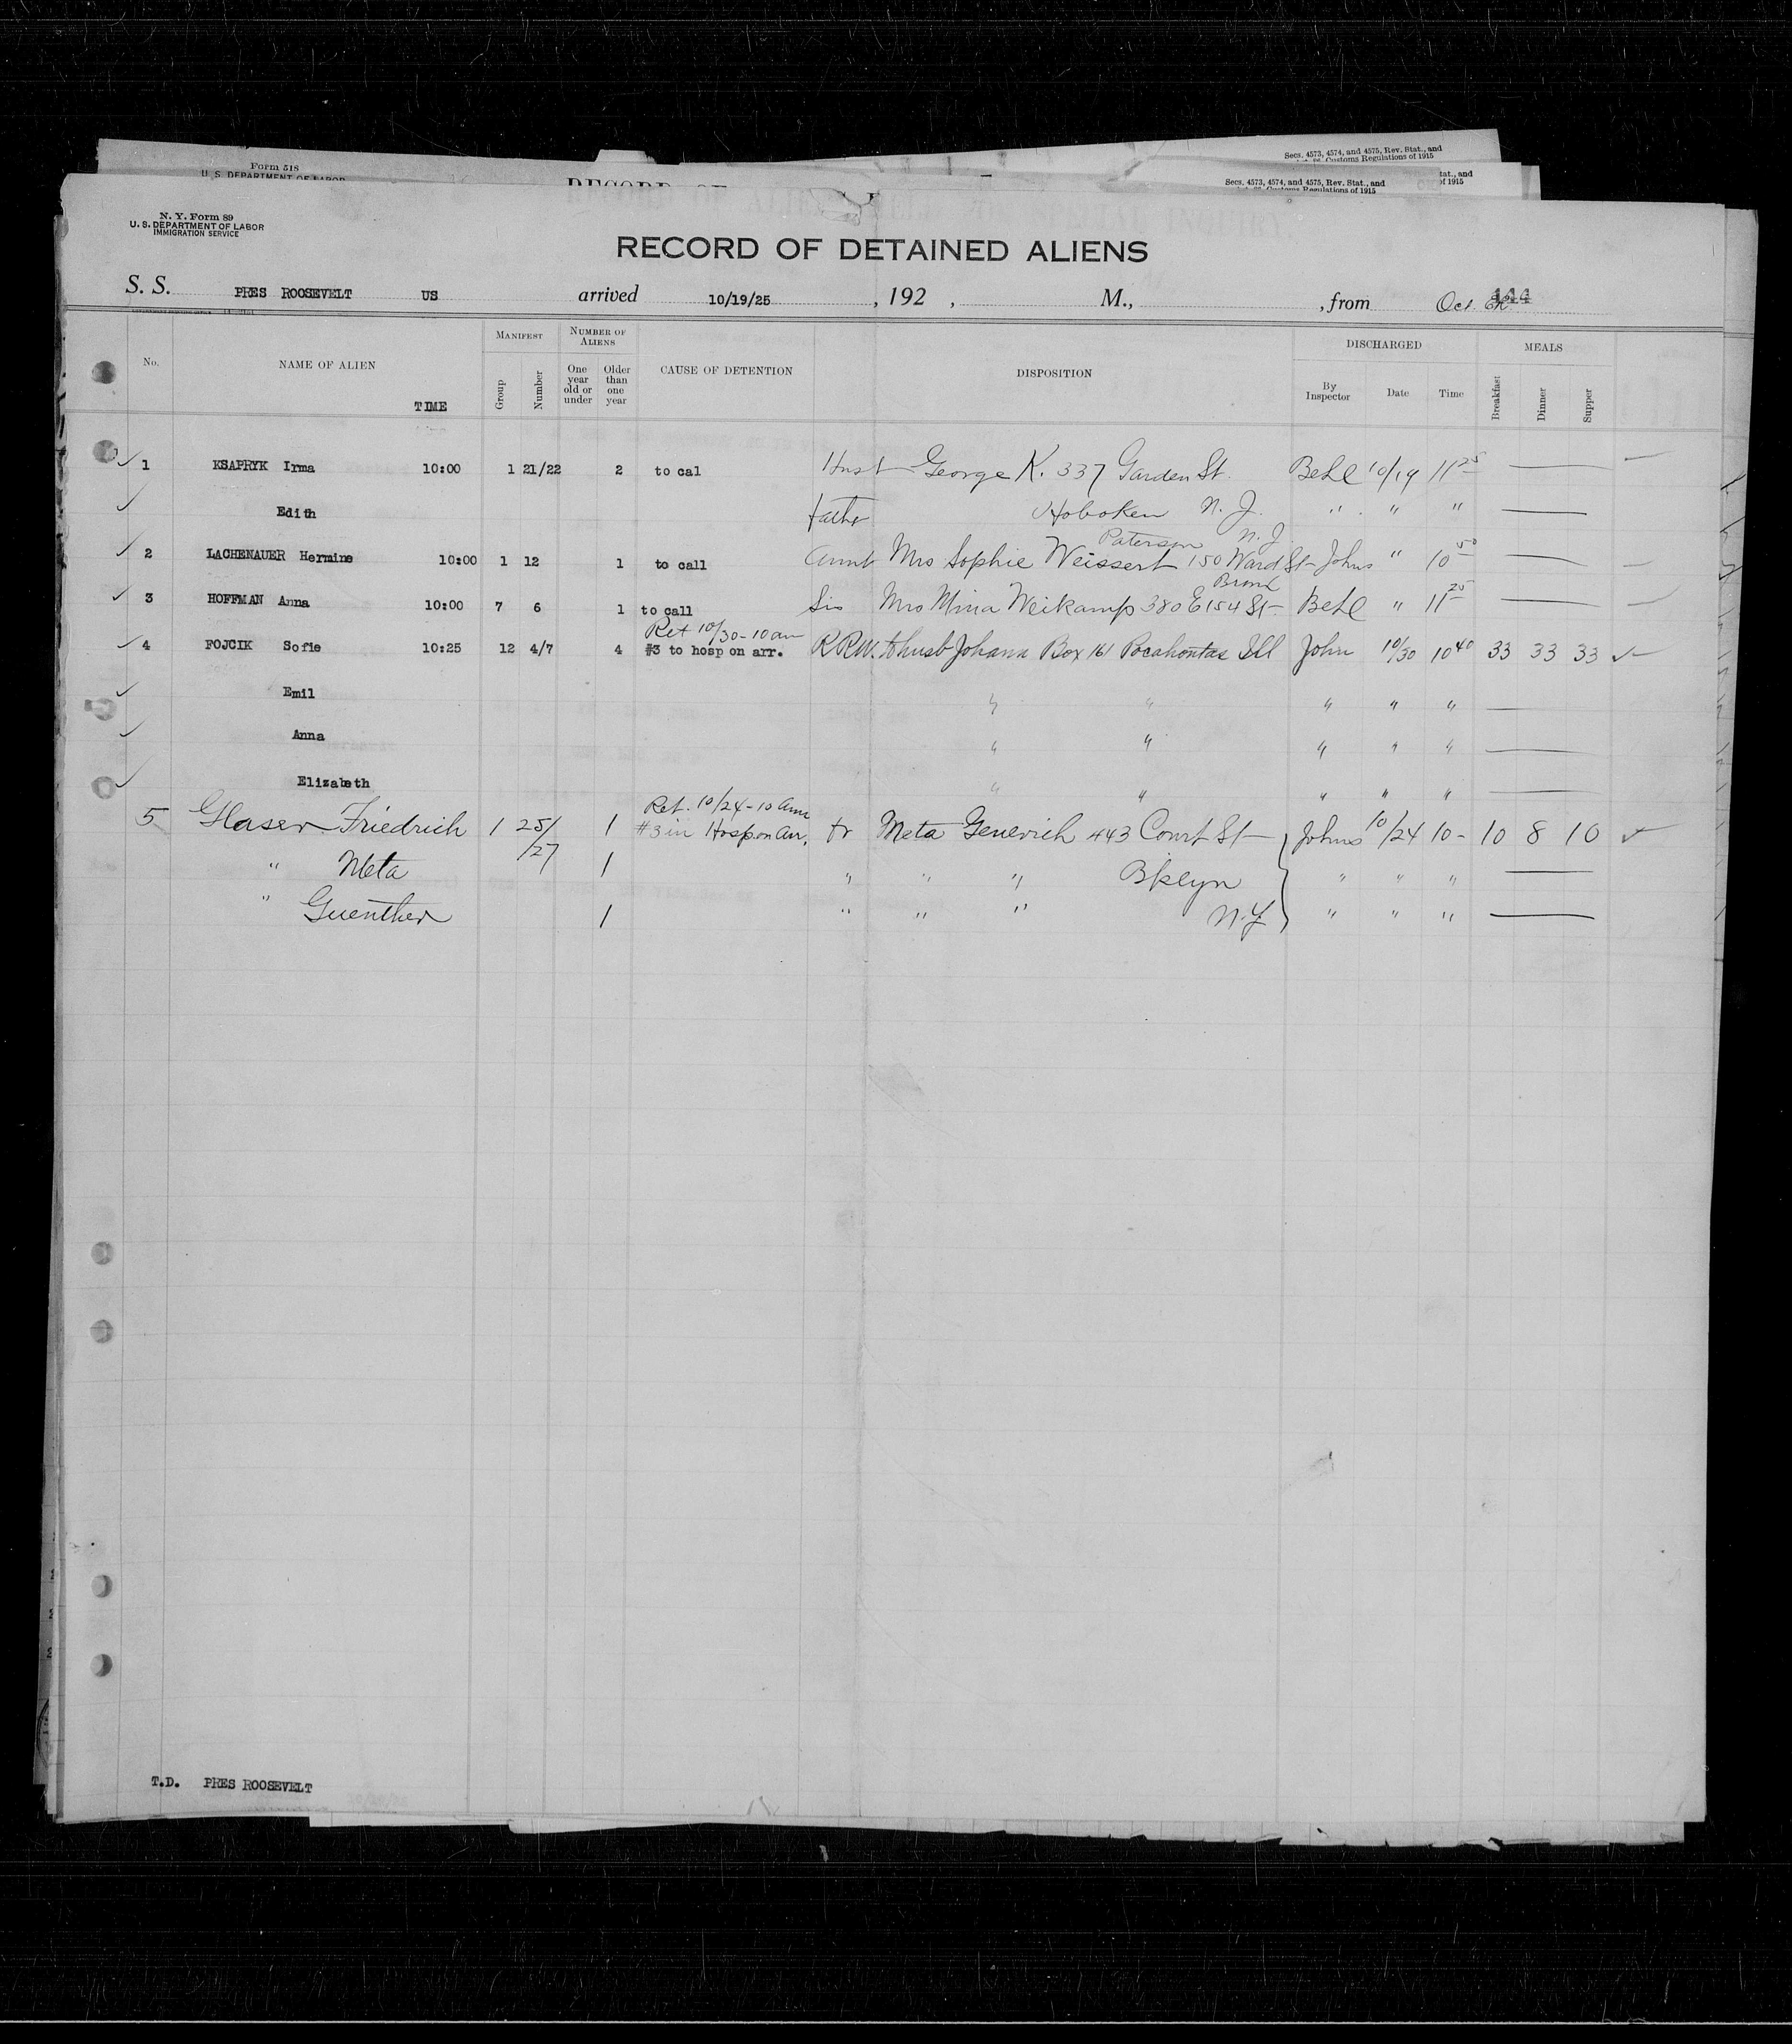 Form 518
U. S. DEPARTMENT OF LABOR
Secs. 4573, 4574, and 4575, Rev. Stat., and
Customs Regulations of 1915
Secs. 4573, 4574, and 4575, Rev. Stat., and
Customs Regulations of 1915
tat., and
of 1915
N. Y. Form 89
U. S. DEPARTMENT OF LABOR
IMMIGRATION SERVICE
RECORD OF DETAINED ALIENS
S. S. PRES ROOSEVELT US arrived 10/19/25 , 192 , M., , from Oct. 144
No. NAME OF ALIEN TIME MANIFEST Group Number NUMBER OF ALIENS One year old or under Older than one year CAUSE OF DETENTION DISPOSITION DISCHARGED By Inspector Date Time MEALS Breakfast Dinner Supper
1 KSAPRYK Irma 10:00 1 21/22 2 to cal Husb George K. 337 Garden St. Behl 10/19 11 25
Edith father Hoboken N. J. " " "
Paterson N.J.
2 LACHENAUER Hermine 10:00 1 12 1 to call Aunt Mrs Sophie Weissert 150 Ward St- Johns " 10 50
Bronx
3 HOFFMAN Anna 10:00 7 6 1 to call Sis Mrs Mina Weikamp 380 E 154 St- Behl " 11 25
Ret 10/30-10 am
4 FOJCIK Sofie 10:25 12 4/7 4 #3 to hosp on arr. RRW. to husb Johann Box 161 Pocahontas Ill John 10/30 10 40 33 33 33
Emil " " " " "
Anna " " " " "
Elizabeth " " " " "
Ret. 10/24-10 am
5 Glaser Friedrich 1 25/27 1 #3 in Hosp on Arr. Meta Genevich 443 Court St- Johns 10/24 10- 10 8 10
" Meta 1 " " " Bklyn " " "
" Guenther 1 " " " N.Y " " "
T.D. PRES ROOSEVELT